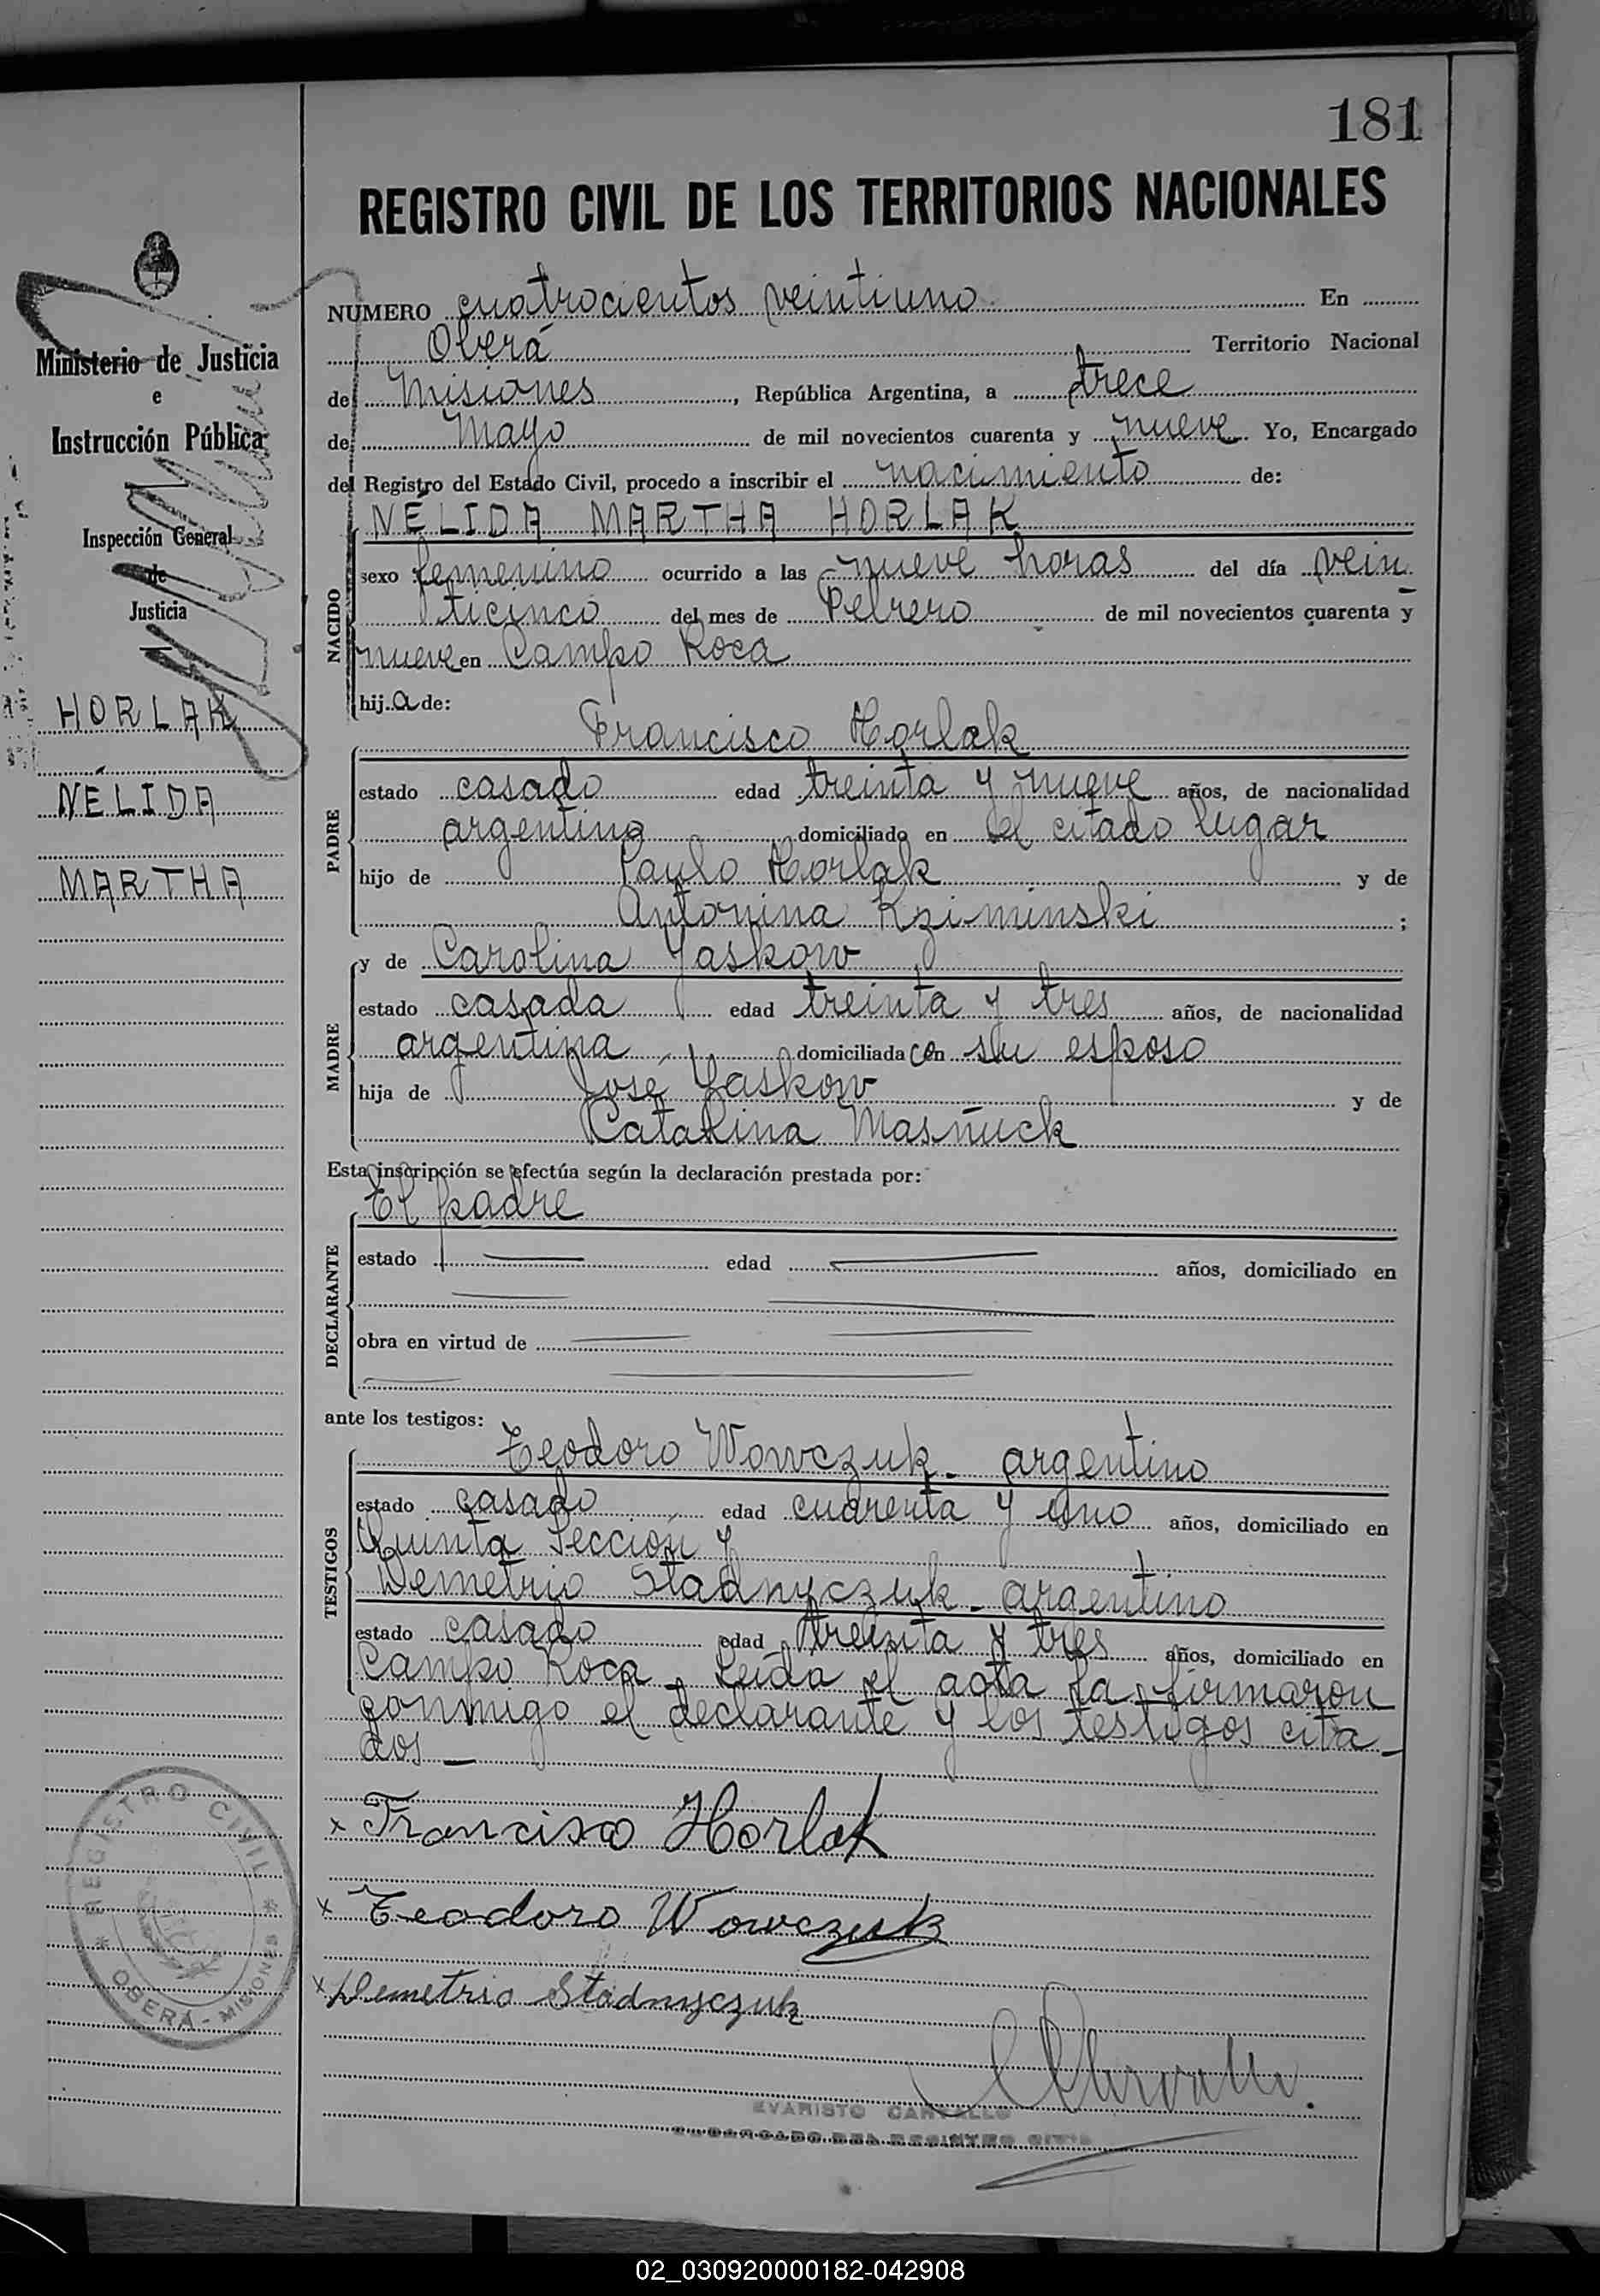 181
REGISTRO CIVIL DE LOS TERRITORIOS NACIONALES
Ministerio de Justicia
e
Instrucción Pública
Inspección General
de
Justicia
HORLAK
NÉLIDA
MARTHA
NUMERO cuatrocientos veintiuno En
Oberá Territorio Nacional
de Misiones, República Argentina, a trece
de Mayo de mil novecientos cuarenta y nueve Yo, Encargado
del Registro del Estado Civil, procedo a inscribir el nacimiento de:
NACIDO
NÉLIDA MARTHA HORLAK
sexo femenino ocurrido a las nueve horas del día vein
ticinco del mes de Febrero de mil novecientos cuarenta y
nueve en Campo Roca
hija de:
PADRE
Francisco Horlak
estado casado edad treinta y nueve años, de nacionalidad
argentina domiciliado en el citado lugar
hijo de Paulo Horlak y de
Antonina Kziminski ;
MADRE
y de Carolina Yaskow
estado casada edad treinta y tres años, de nacionalidad
argentina domiciliada con su esposo
hija de José Yaskow y de
Catalina Masñuck
Esta inscripción se efectúa según la declaración prestada por:
DECLARANTE
El padre
estado edad años, domiciliado en
obra en virtud de
ante los testigos:
TESTIGOS
Teodoro Wowczuk - argentino
estado casado edad cuarenta y uno años, domiciliado en
Quinta Sección y
Demetrio Stadnyczuk - argentino
estado casado edad treinta y tres años, domiciliado en
Campo Roca - Leída el acta la firmaron
conmigo el declarante y los testigos cita-
dos -
x Francisco Horlak
x Teodoro Wowczuk
x Demetrio Stadnyczuk
REGISTRO CIVIL
OBERÁ - MISIONES
EVARISTO CARVALLO
ENCARGADO DEL REGISTRO CIVIL
02_030920000182-042908